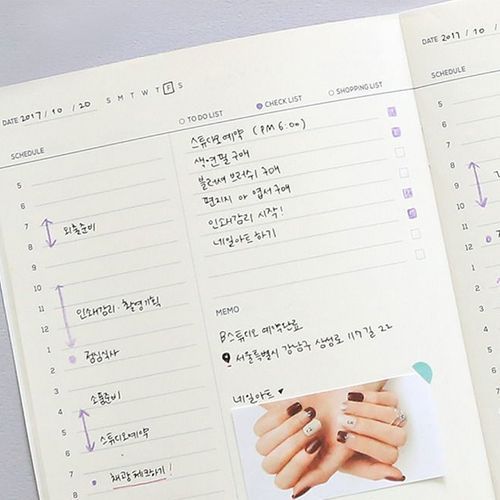 DATE 2017 / 10 / 20 S M T W T F S
○ TO DO LIST CHECK LIST ○ SHOPPING LIST
SCHEDULE
5
6
7
8 외출준비
9
10
11 인쇄감리·촬영기획
12
1 점심식사
2
3
4 소품준비
5
6 스튜디오예약
7 채광 체크하기!
8
스튜디오예약 (PM 6:00)
색연필 구매
블러셔 브러쉬 구매
편지지 and 엽서 구매
인쇄감리 시작!
네일아트 하기
MEMO
B스튜디오 예약완료
서울특별시 강남구 삼성로 117길 22
네일아트 ♥
DATE 2017 / 10 /
SCHEDULE
5
6
7
8
9
10
11
12
1
2
3
4
5
6
7